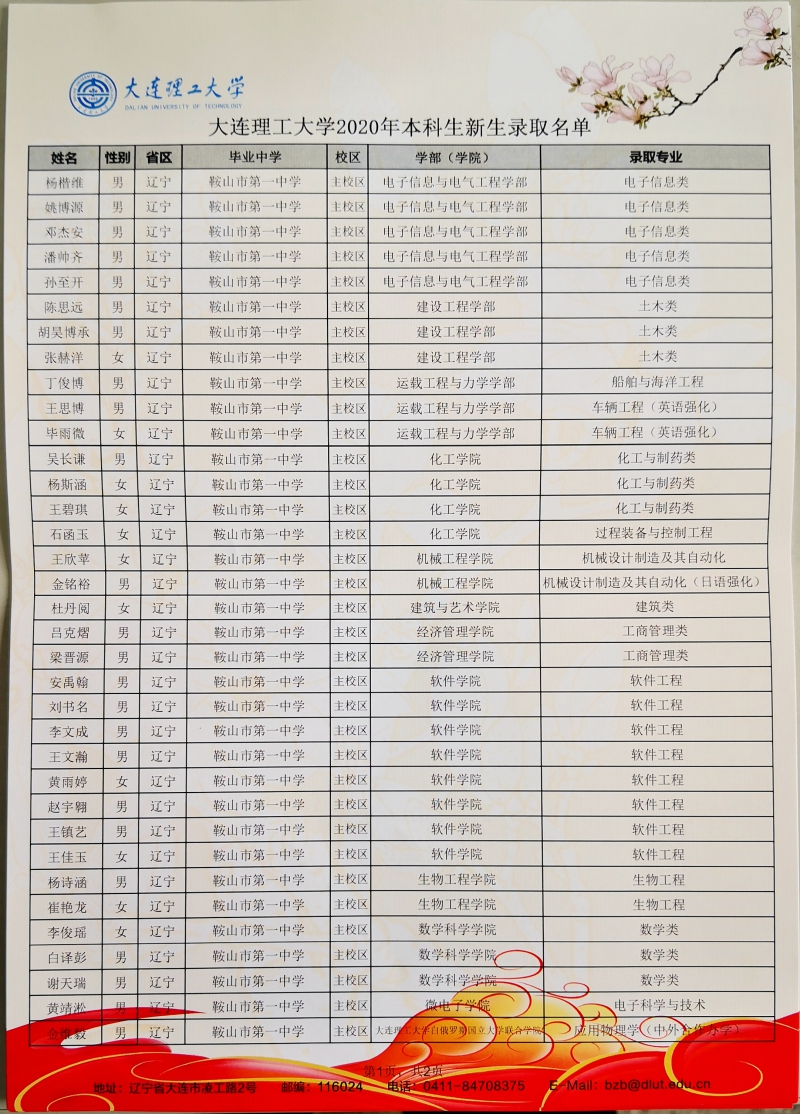 大连理工大学
DALIAN UNIVERSITY OF TECHNOLOGY
大连理工大学2020年本科生新生录取名单
姓名 性别 省区 毕业中学 校区 学部（学院） 录取专业
杨楷维 男 辽宁 鞍山市第一中学 主校区 电子信息与电气工程学部 电子信息类
姚博源 男 辽宁 鞍山市第一中学 主校区 电子信息与电气工程学部 电子信息类
邓杰安 男 辽宁 鞍山市第一中学 主校区 电子信息与电气工程学部 电子信息类
潘帅齐 男 辽宁 鞍山市第一中学 主校区 电子信息与电气工程学部 电子信息类
孙至开 男 辽宁 鞍山市第一中学 主校区 电子信息与电气工程学部 电子信息类
陈思远 男 辽宁 鞍山市第一中学 主校区 建设工程学部 土木类
胡昊博承 男 辽宁 鞍山市第一中学 主校区 建设工程学部 土木类
张赫洋 女 辽宁 鞍山市第一中学 主校区 建设工程学部 土木类
丁俊博 男 辽宁 鞍山市第一中学 主校区 运载工程与力学学部 船舶与海洋工程
王思博 男 辽宁 鞍山市第一中学 主校区 运载工程与力学学部 车辆工程（英语强化）
毕雨微 女 辽宁 鞍山市第一中学 主校区 运载工程与力学学部 车辆工程（英语强化）
吴长谦 男 辽宁 鞍山市第一中学 主校区 化工学院 化工与制药类
杨斯涵 女 辽宁 鞍山市第一中学 主校区 化工学院 化工与制药类
王碧琪 女 辽宁 鞍山市第一中学 主校区 化工学院 化工与制药类
石函玉 女 辽宁 鞍山市第一中学 主校区 化工学院 过程装备与控制工程
王欣苹 女 辽宁 鞍山市第一中学 主校区 机械工程学院 机械设计制造及其自动化
金铭裕 男 辽宁 鞍山市第一中学 主校区 机械工程学院 机械设计制造及其自动化（日语强化）
杜丹阅 女 辽宁 鞍山市第一中学 主校区 建筑与艺术学院 建筑类
吕克熠 男 辽宁 鞍山市第一中学 主校区 经济管理学院 工商管理类
梁晋源 男 辽宁 鞍山市第一中学 主校区 经济管理学院 工商管理类
安禹翰 男 辽宁 鞍山市第一中学 主校区 软件学院 软件工程
刘书名 男 辽宁 鞍山市第一中学 主校区 软件学院 软件工程
李文成 男 辽宁 鞍山市第一中学 主校区 软件学院 软件工程
王文瀚 男 辽宁 鞍山市第一中学 主校区 软件学院 软件工程
黄雨婷 女 辽宁 鞍山市第一中学 主校区 软件学院 软件工程
赵宇翱 男 辽宁 鞍山市第一中学 主校区 软件学院 软件工程
王镇艺 男 辽宁 鞍山市第一中学 主校区 软件学院 软件工程
王佳玉 女 辽宁 鞍山市第一中学 主校区 软件学院 软件工程
杨诗涵 男 辽宁 鞍山市第一中学 主校区 生物工程学院 生物工程
崔艳龙 女 辽宁 鞍山市第一中学 主校区 生物工程学院 生物工程
李俊瑶 女 辽宁 鞍山市第一中学 主校区 数学科学学院 数学类
白译彭 男 辽宁 鞍山市第一中学 主校区 数学科学学院 数学类
谢天瑞 男 辽宁 鞍山市第一中学 主校区 数学科学学院 数学类
黄靖淞 男 辽宁 鞍山市第一中学 主校区 微电子学院 电子科学与技术
金雅毅 男 辽宁 鞍山市第一中学 主校区 大连理工大学白俄罗斯国立大学联合学院 应用物理学（中外合作办学）
第1页，共2页
地址：辽宁省大连市凌工路2号 邮编：116024 电话：0411-84708375 E-Mail：bzb@dlut.edu.cn